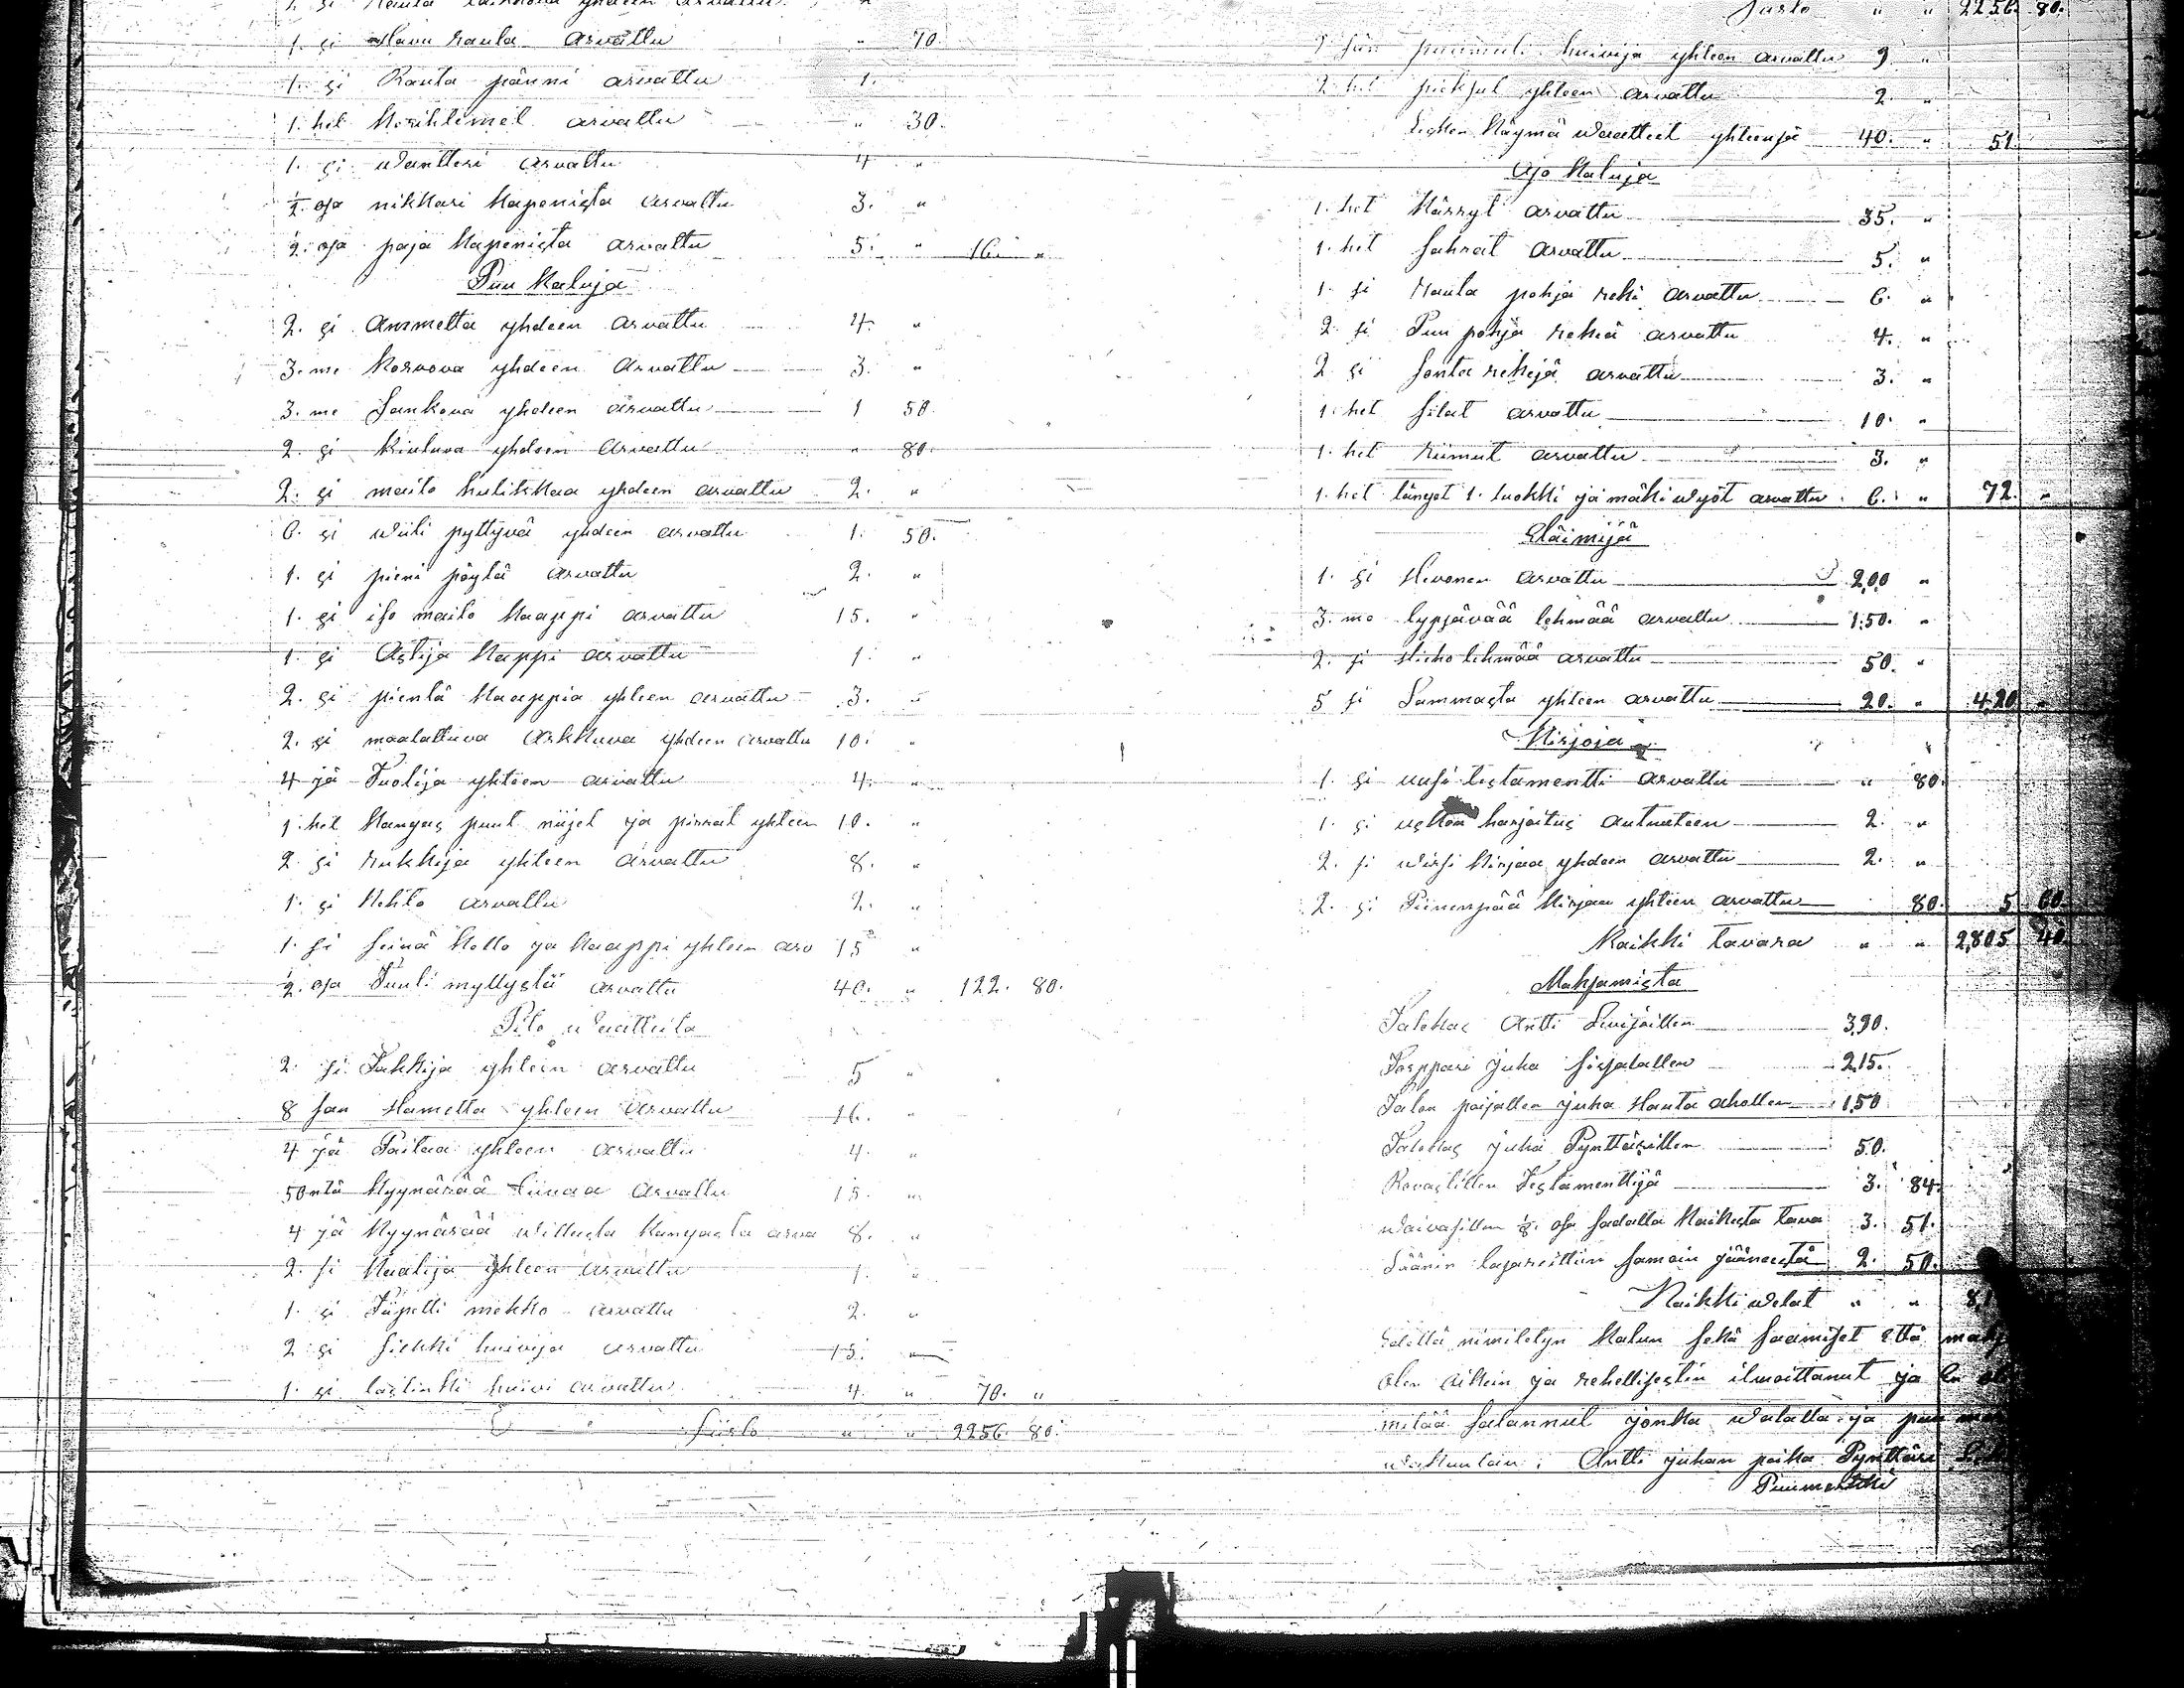 1. si Havu rauta arvattu " 70.
1. si Rauta pänni arvattu 1. "
1. het Kerihtimet arvattu " 30.
1. si wantteri arvattu 4 "
1/2. osa nikkari Kapenista arvattu 3. "
1/2. osa paja Kapenista arvattu 5. " 16. "
Puu Kaluja
2. si Ammetta yhdeen arvattu 4. "
3. me Korvova yhdeen arvattu 3. "
3. me Sankova yhdeen arvattu 1 50
2. si Kiuluva yhdeen arvattu " 80.
2. si maito hulikkaa yhdeen arvattu 2. "
6. si wiili pyttyvä yhdeen arvattu 1. 50.
1. si pieni pöytä arvattu 2. "
1. si iso maito Kaappi arvattu 15. "
1. si Astija Kappi arvattu 1. "
2. si pientä Kaappia yhteen arvattu 3. "
2. si maalattuva Arkkuva yhdeen arvattu 10. "
4 jä Tuolija yhteen arvattu 4. "
1. het Kangas puut niijet ja pirrat yhteen 10. "
2. si rukkija yhteen arvattu 8. "
1. si Kehto arvattu 2. "
1. si seinä Kello ja Kaappi yhteen arv 15 "
1/2. osa Tuuli myllystä arvattu 40. " 122. 80.
Pito waatteita
2. si Takkija yhteen arvattu 5 "
8 san Hametta yhteen arvattu 16. "
4 jä Paitaa yhteen arvattu 4. "
50ntä Kyynärää Liinaa arvattu 15. "
4 jä Kyynärää willasta Kangasta arva 8. "
2. si Kaalija yhteen arvattu 1. "
1. si Tüpetti mekko arvattu 2. "
2 si silkki huivija arvattu 15. "
1. si lastinki huivi arvattu 4. " 70. "
Siirto " " 2256. 80.
Siirto " " 2256. 80.
huivija yhteen arvattu 9 "
2. het yhteen arvattu 2. "
Käymä waatteet yhteensä 40. " 51.
Ajo Kaluja
1. het Kärryt arvattu 35. "
1. het Sahrat arvattu 5. "
1. si Rauta pohja reki arvattu 6. "
2. si Puu pohja rekiä arvattu 4. "
2 si Sonta rekijä arvattu 3. "
1. het Silat arvattu 10. "
1. het Riimut arvattu 3. "
1. het länget 1. luokki ja mäki wyöt arvattu 6. " 72. "
Eläimijä
1. si Hevonen arvattu 200 "
3. me lypsävää lehmää arvattu 150. "
2. si Hieho lehmää arvattu 50. "
5 si Lammasta yhteen arvattu 20. " 420 "
Kirjoja
1. si uusi testamentti arvattu " 80.
1. si uskon harjoitus autuuteen 2. "
2. si wirsi Kirjaa yhdeen arvattu 2. "
2. si Pienempää Kirjaa yhteen arvattu 80. 5 60
Kaikki tavara " " 2,805 40
Maksamista
Talokas Antti
Torppari Juha Sirjalallen 215.
Talon pojallen Juha Hauta ahollen 150
Talokas Juha Pynttärillen 50.
Rovastillen Testamenttijä 3. 84.
Waivasillen 1/8. osa sadalta Kaikesta tava 3. 51.
Läänin lasarettiin samoin jäänestä 2. 50.
Kaikki welat " "
Edellä nimitetyn Kalun sekä saamiset että
olen oikein ja rehellisestin ilmoittanut ja en
mitää salannut jonka walalla ja
wakuutan: Antti Juhan poika Pynttäri
Puumerkki